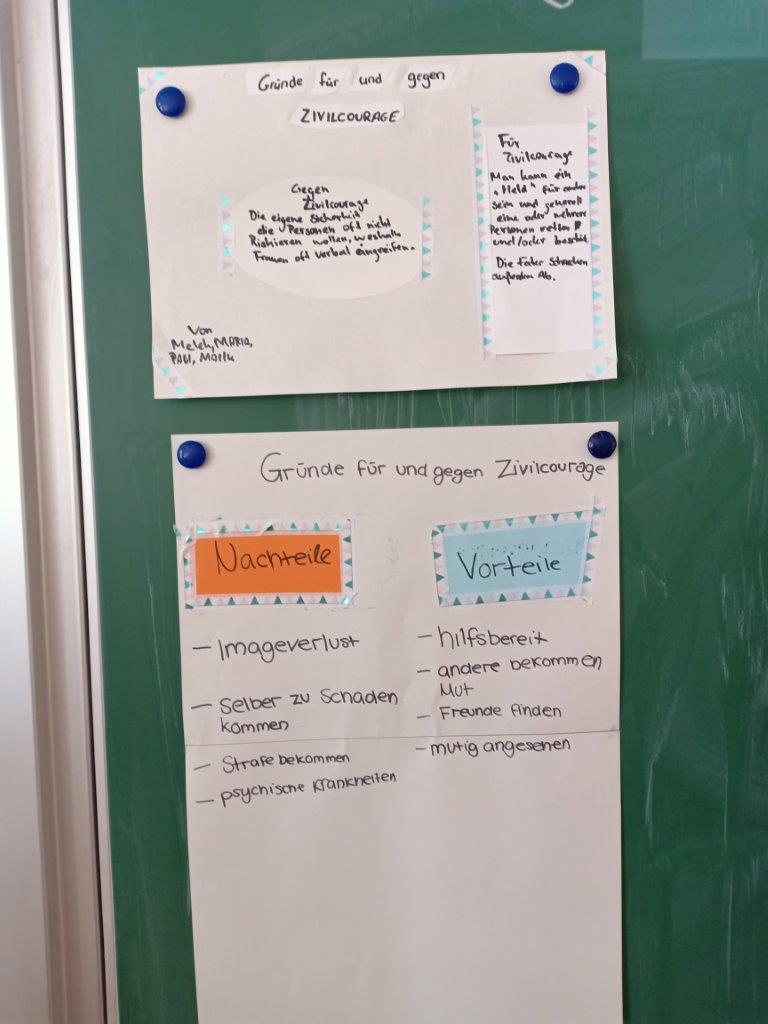 Gründe für und gegen
ZIVILCOURAGE
Gegen
Zivilcourage
Die eigene Sicherheit
die Personen oft nicht
Riskieren wollen, weshalb
Frauen oft verbal eingreifen.
Für
Zivilcourage
Man kann ein
"Held" für andere
sein und generell
eine oder mehrere
Personen retten
und/oder
Die Täter Schrecken
Ab.
Von
MARIA,
PAUL,
Gründe für und gegen Zivilcourage
Nachteile
– Imageverlust
– Selber zu Schaden
kommen
– Strafe bekommen
– psychische Krankheiten
Vorteile
– hilfsbereit
– andere bekommen
Mut
– Freunde finden
– mutig angesehen